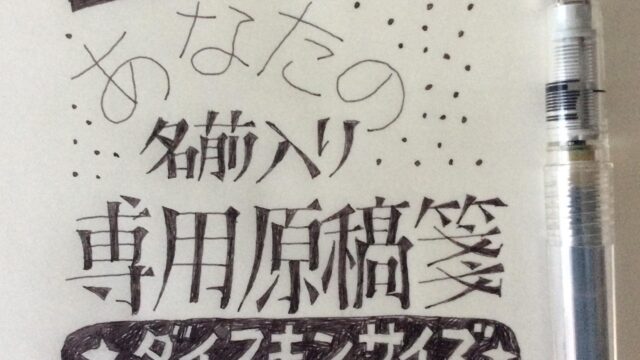 あなたの
名前入り
専用原稿箋
★ダイスキンサイズ★